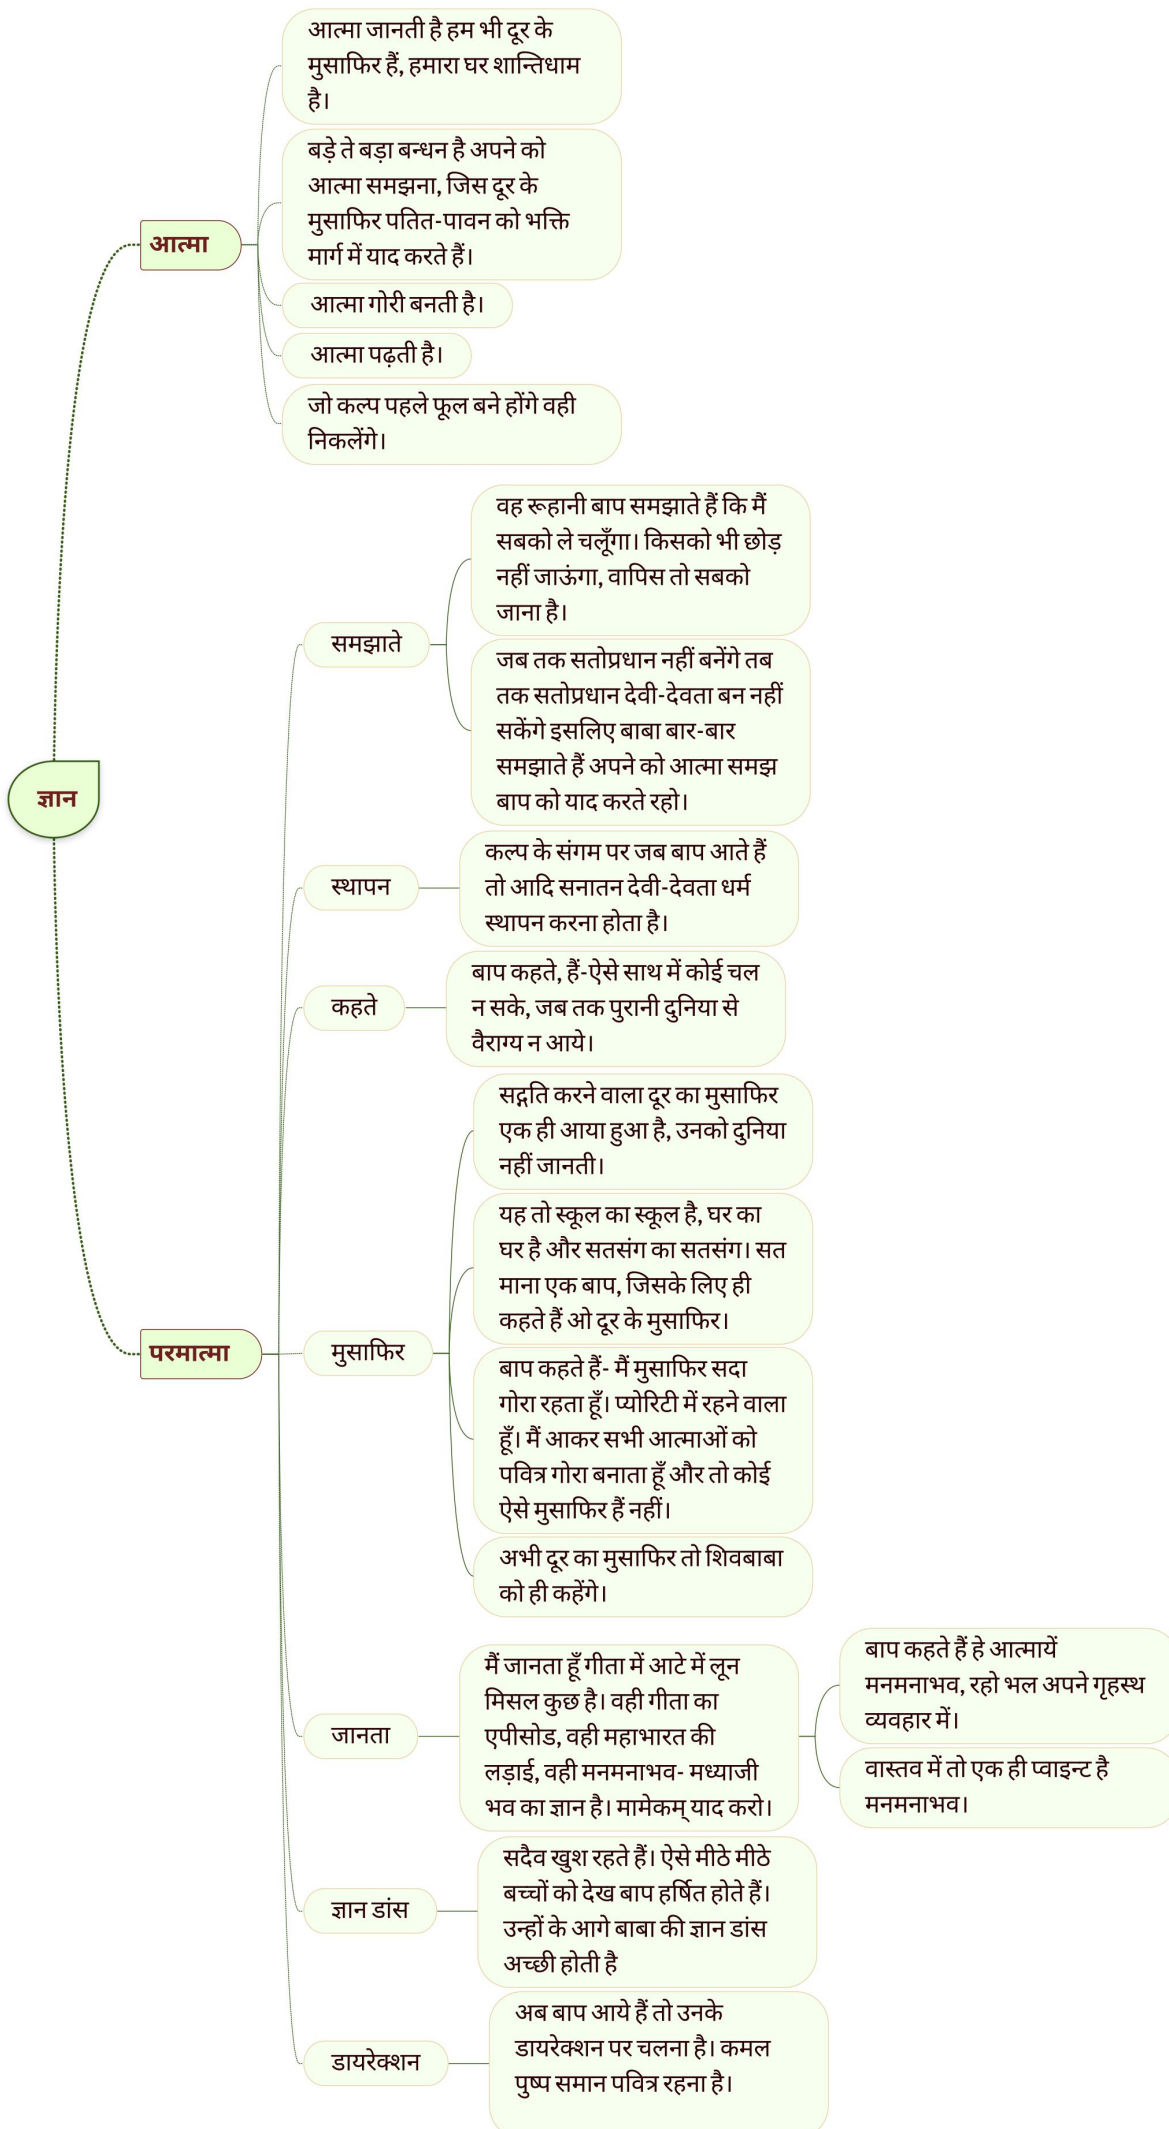 ज्ञान
आत्मा
आत्मा जानती है हम भी दूर के
मुसाफिर हैं, हमारा घर शान्तिधाम
है।
बड़े ते बड़ा बन्धन है अपने को
आत्मा समझना, जिस दूर के
मुसाफिर पतित-पावन को भक्ति
मार्ग में याद करते हैं।
आत्मा गोरी बनती है।
आत्मा पढ़ती है।
जो कल्प पहले फूल बने होंगे वही
निकलेंगे।
परमात्मा
समझाते
वह रूहानी बाप समझाते हैं कि मैं
सबको ले चलूँगा। किसको भी छोड़
नहीं जाऊंगा, वापिस तो सबको
जाना है।
जब तक सतोप्रधान नहीं बनेंगे तब
तक सतोप्रधान देवी-देवता बन नहीं
सकेंगे इसलिए बाबा बार-बार
समझाते हैं अपने को आत्मा समझ
बाप को याद करते रहो।
स्थापन
कल्प के संगम पर जब बाप आते हैं
तो आदि सनातन देवी-देवता धर्म
स्थापन करना होता है।
कहते
बाप कहते, हैं-ऐसे साथ में कोई चल
न सके, जब तक पुरानी दुनिया से
वैराग्य न आये।
मुसाफिर
सद्गति करने वाला दूर का मुसाफिर
एक ही आया हुआ है, उनको दुनिया
नहीं जानती।
यह तो स्कूल का स्कूल है, घर का
घर है और सतसंग का सतसंग। सत
माना एक बाप, जिसके लिए ही
कहते हैं ओ दूर के मुसाफिर।
बाप कहते हैं- मैं मुसाफिर सदा
गोरा रहता हूँ। प्योरिटी में रहने वाला
हूँ। मैं आकर सभी आत्माओं को
पवित्र गोरा बनाता हूँ और तो कोई
ऐसे मुसाफिर हैं नहीं।
अभी दूर का मुसाफिर तो शिवबाबा
को ही कहेंगे।
जानता
मैं जानता हूँ गीता में आटे में लून
मिसल कुछ है। वही गीता का
एपीसोड, वही महाभारत की
लड़ाई, वही मनमनाभव- मध्याजी
भव का ज्ञान है। मामेकम् याद करो।
बाप कहते हैं हे आत्मायें
मनमनाभव, रहो भल अपने गृहस्थ
व्यवहार में।
वास्तव में तो एक ही प्वाइन्ट है
मनमनाभव।
ज्ञान डांस
सदैव खुश रहते हैं। ऐसे मीठे मीठे
बच्चों को देख बाप हर्षित होते हैं।
उन्हों के आगे बाबा की ज्ञान डांस
अच्छी होती है
डायरेक्शन
अब बाप आये हैं तो उनके
डायरेक्शन पर चलना है। कमल
पुष्प समान पवित्र रहना है।